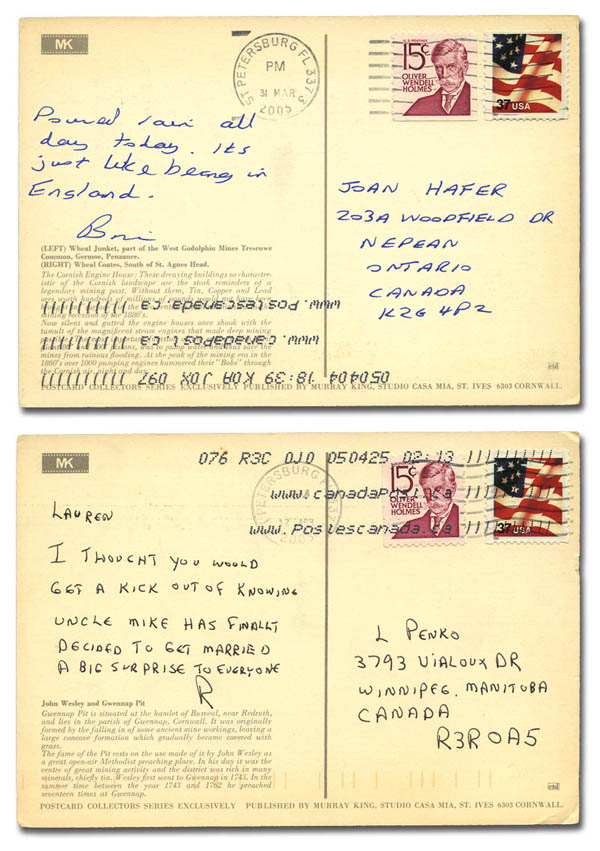 MK
ST PETERSBURG FL 337
PM
31 MAR
2005
U.S. POSTAGE
15¢
OLIVER
WENDELL
HOLMES
37 USA
Poured rain all
day today. Its
just like being in
England.
JOAN HAFER
203A WOODFIELD DR
NEPEAN
ONTARIO
CANADA
K2G 4P2
(LEFT) Wheal Junket, part of the West Godolphin Mines Trescowe
Common, Germoe, Penzance.
(RIGHT) Wheal Coates, South of St. Agnes Head.
The Cornish Engine House: These decaying buildings so character-
istic of the Cornish landscape are the stark reminders of a
legendary mining past. Without them, Tin, Copper and Lead
mining recession of the 1880's.
Now silent and gutted the engine houses once shook with the
tumult of the magnificent steam engines that made deep mining
mines from ruinous flooding. At the peak of the mining era in the
1860's over 1000 pumping engines hammered their "Bobs" through
the Cornish air, night and day.
www.postescanada.ca
www.canadapost.ca
050404 18:39 K0A JOX 097
ctd
POSTCARD COLLECTORS SERIES EXCLUSIVELY PUBLISHED BY MURRAY KING, STUDIO CASA MIA, ST. IVES 6303 CORNWALL.
MK
076 R3C OJO 050425 02:13
www.canadapost.ca
www.postescanada.ca
ST PETERSBURG FL
15¢
OLIVER
WENDELL
HOLMES
37 USA
LAUREN
I THOUGHT YOU WOULD
GET A KICK OUT OF KNOWING
UNCLE MIKE HAS FINALLY
DECIDED TO GET MARRIED
A BIG SURPRISE TO EVERYONE
R
L PENKO
3793 VIALOUX DR
WINNIPEG, MANITOBA
CANADA
R3R 0A5
John Wesley and Gwennap Pit
Gwennap Pit is situated at the hamlet of Busveal, near Redruth,
and lies in the parish of Gwennap, Cornwall. It was originally
formed by the falling in of some ancient mine workings, leaving a
large concave formation which gradually became covered with
grass.
The fame of the Pit rests on the use made of it by John Wesley as
a great open-air Methodist preaching place. In his day it was the
centre of great mining activity and the district was rich in many
minerals, chiefly tin. Wesley first went to Gwennap in 1743. In the
summer time between the year 1743 and 1762 he preached
seventeen times at Gwennap.
ctd
POSTCARD COLLECTORS SERIES EXCLUSIVELY PUBLISHED BY MURRAY KING, STUDIO CASA MIA, ST. IVES 6303 CORNWALL.